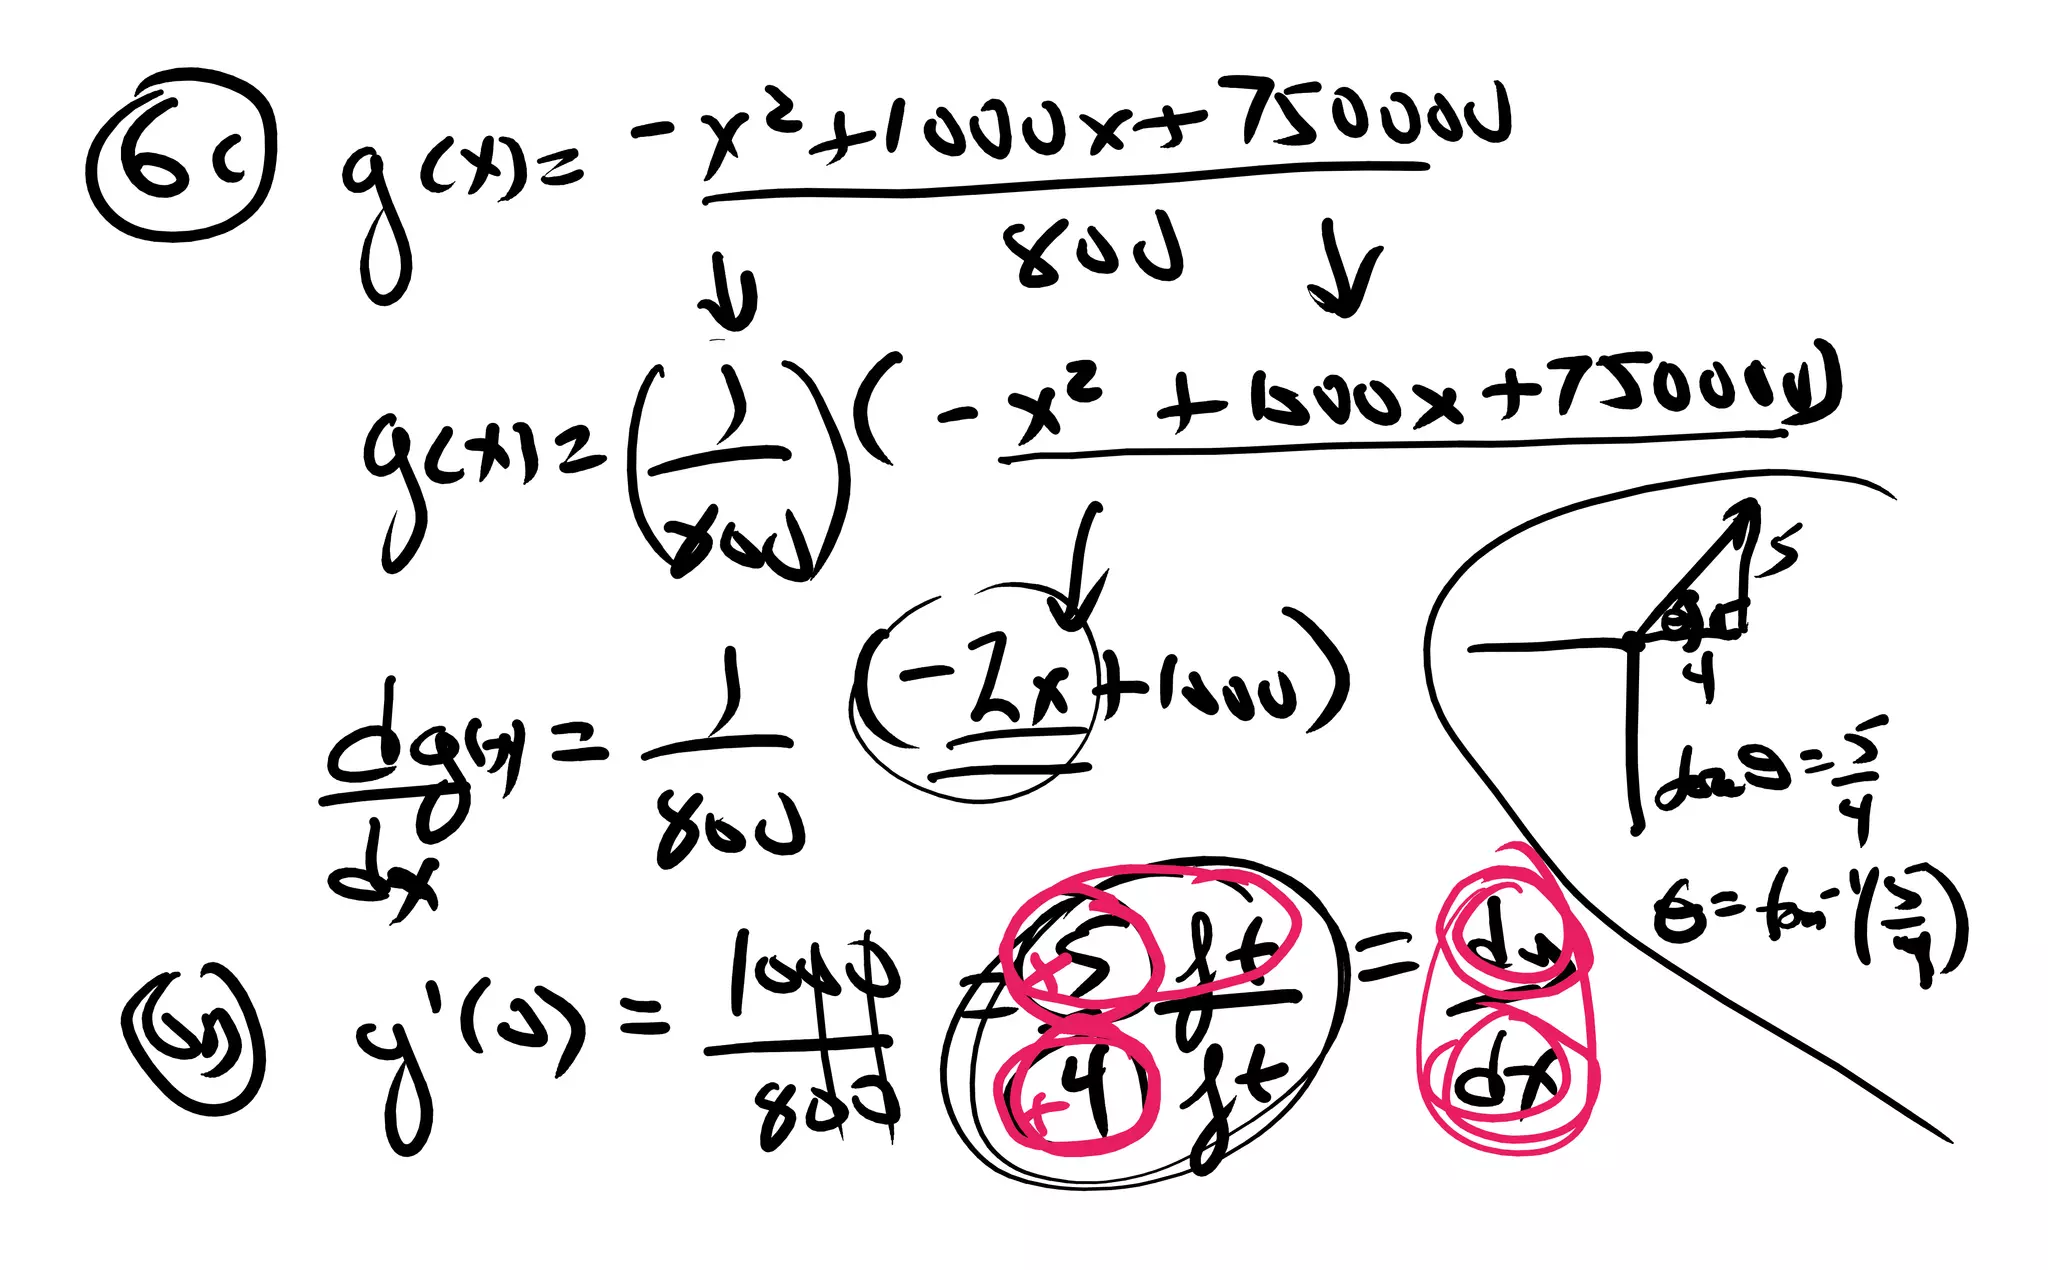 6c g(x) = (-x² + 1000x + 750000) / 800
g(x) = (1/800)(-x² + 1000x + 750000)
dg(x)/dx = 1/800 (-2x + 1000)
g'(0) = 1000/800 = +5 ft / +4 ft = dy/dx
5
θ
4
tan θ = 5/4
θ = tan⁻¹(5/4)